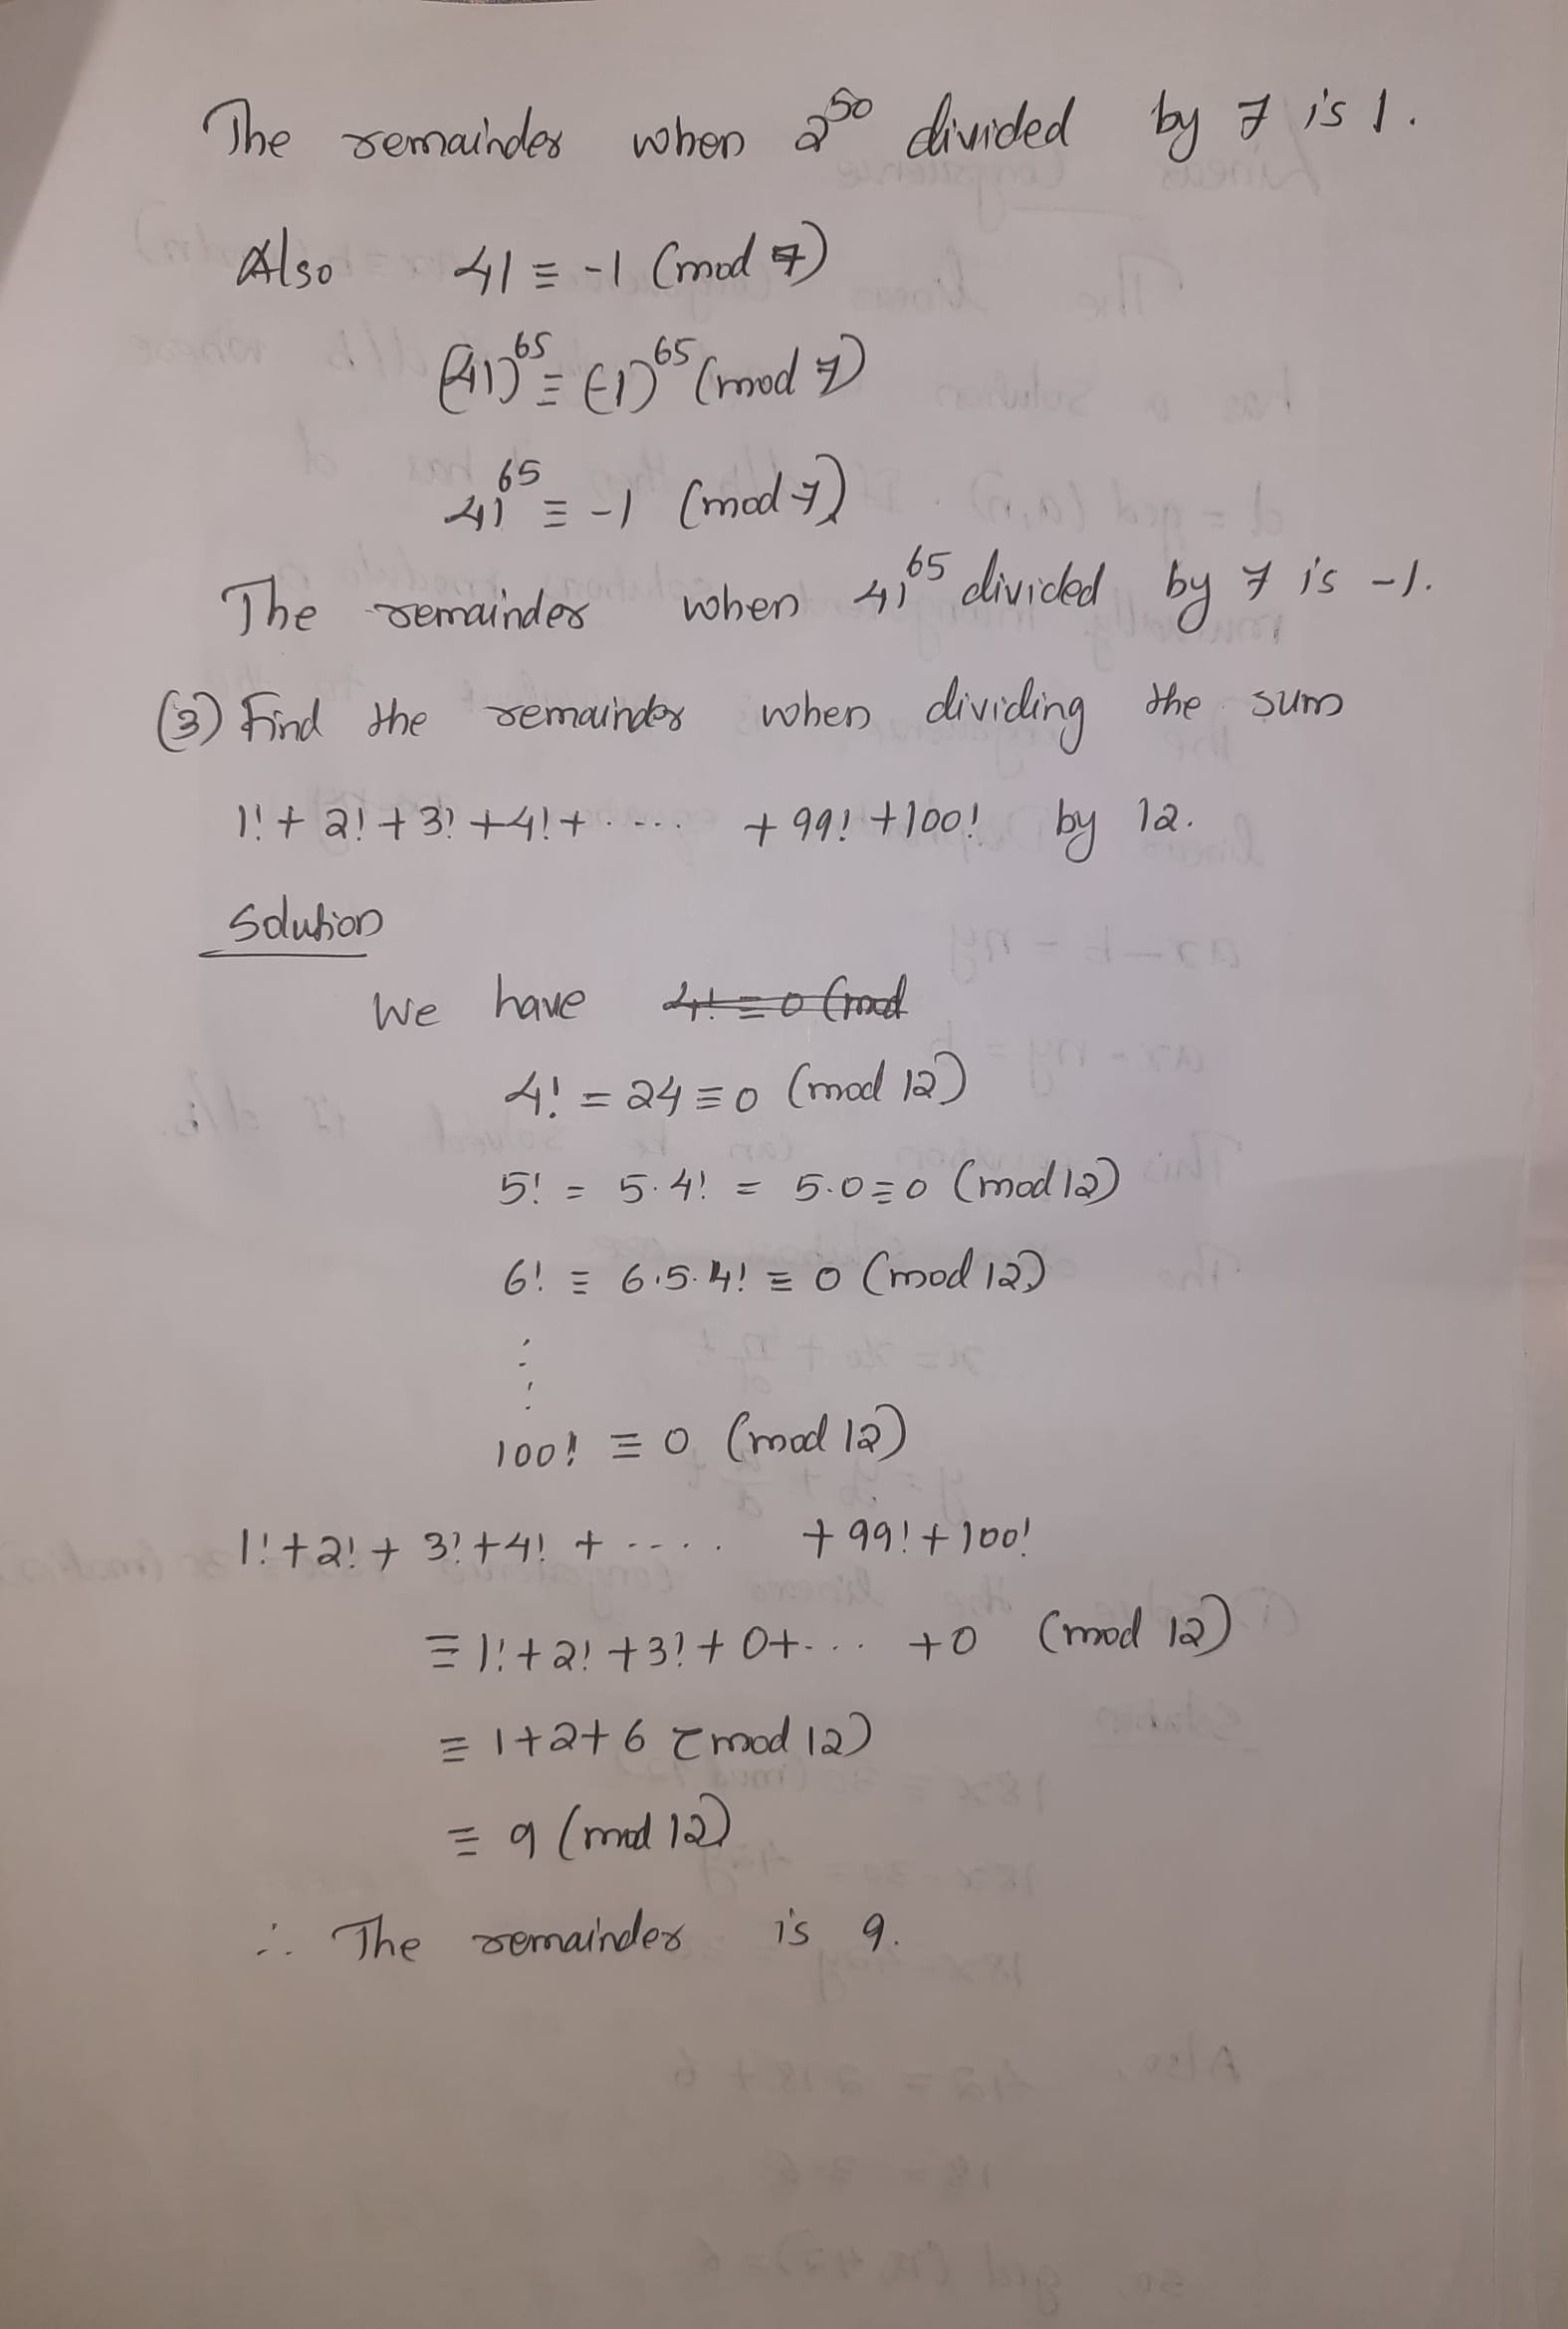 The remainder when 2^50 divided by 7 is 1.
Also 41 ≡ -1 (mod 7)
(41)^65 ≡ (-1)^65 (mod 7)
41^65 ≡ -1 (mod 7)
The remainder when 41^65 divided by 7 is -1.
(3) Find the remainder when dividing the sum
1! + 2! + 3! + 4! + ..... + 99! + 100! by 12.
Solution
We have 4! ≡ 0 (mod
4! = 24 ≡ 0 (mod 12)
5! = 5.4! = 5.0 ≡ 0 (mod 12)
6! ≡ 6.5.4! ≡ 0 (mod 12)
⋮
100! ≡ 0 (mod 12)
1! + 2! + 3! + 4! + ..... + 99! + 100!
≡ 1! + 2! + 3! + 0 + .... + 0 (mod 12)
≡ 1 + 2 + 6 (mod 12)
≡ 9 (mod 12)
∴ The remainder is 9.